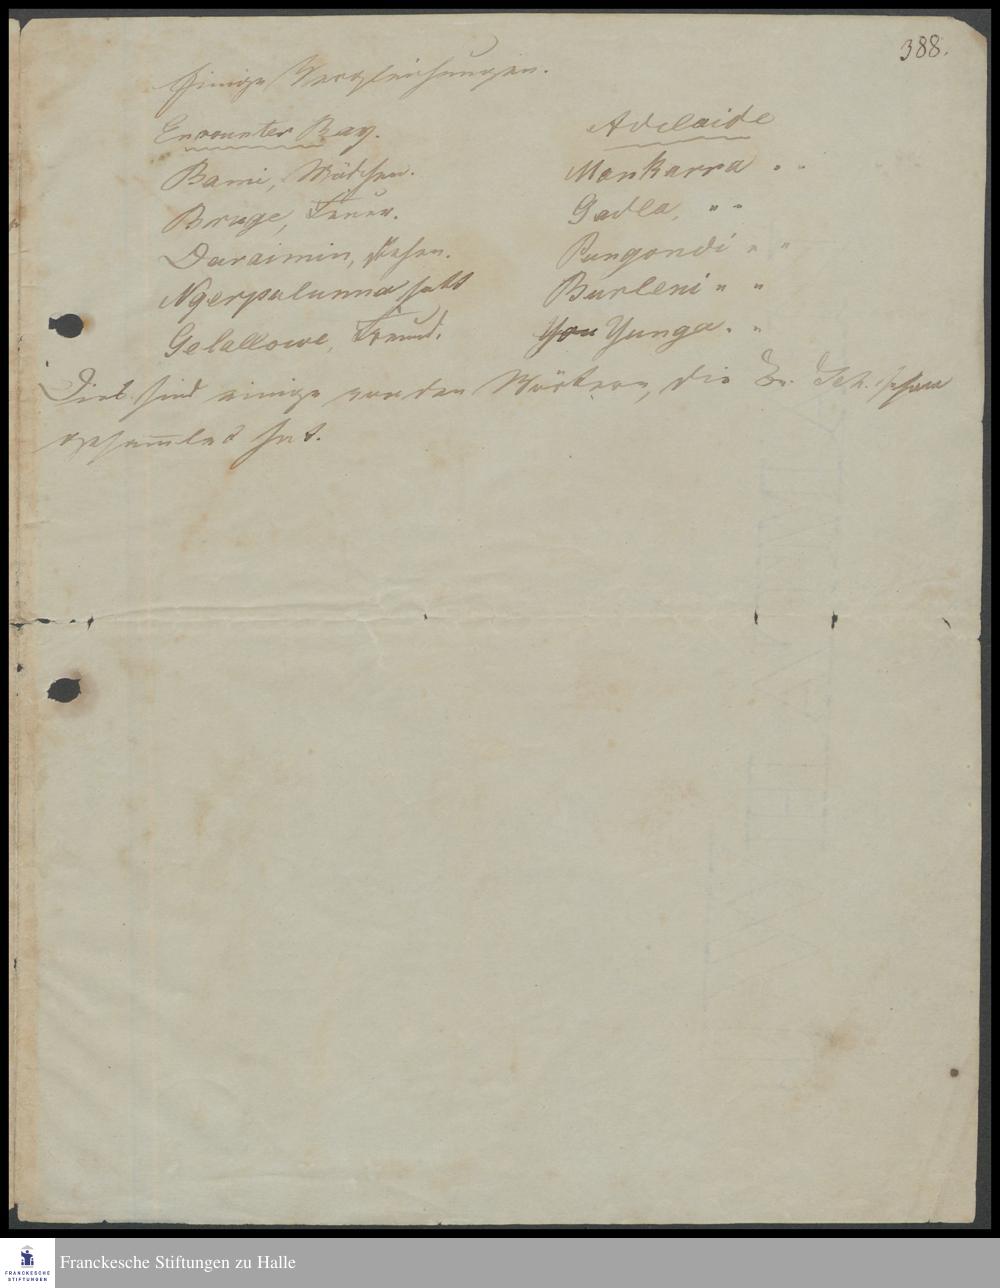 388.
Einige Vergleichungen.
Encounter Bay. Adelaide
Bami, Mädchen. Mankarra " "
Bruge, Feuer. Gadla, " "
Daraimin, stehen. Pungondi " "
Ngerpulunna satt Burleni " "
Gelallowe, Freund. You Yunga. "
Dies sind einige von den Wörtern, die Br. Sch. schon
gesammlet hat.
FRANCKESCHE
STIFTUNGEN
Franckesche Stiftungen zu Halle